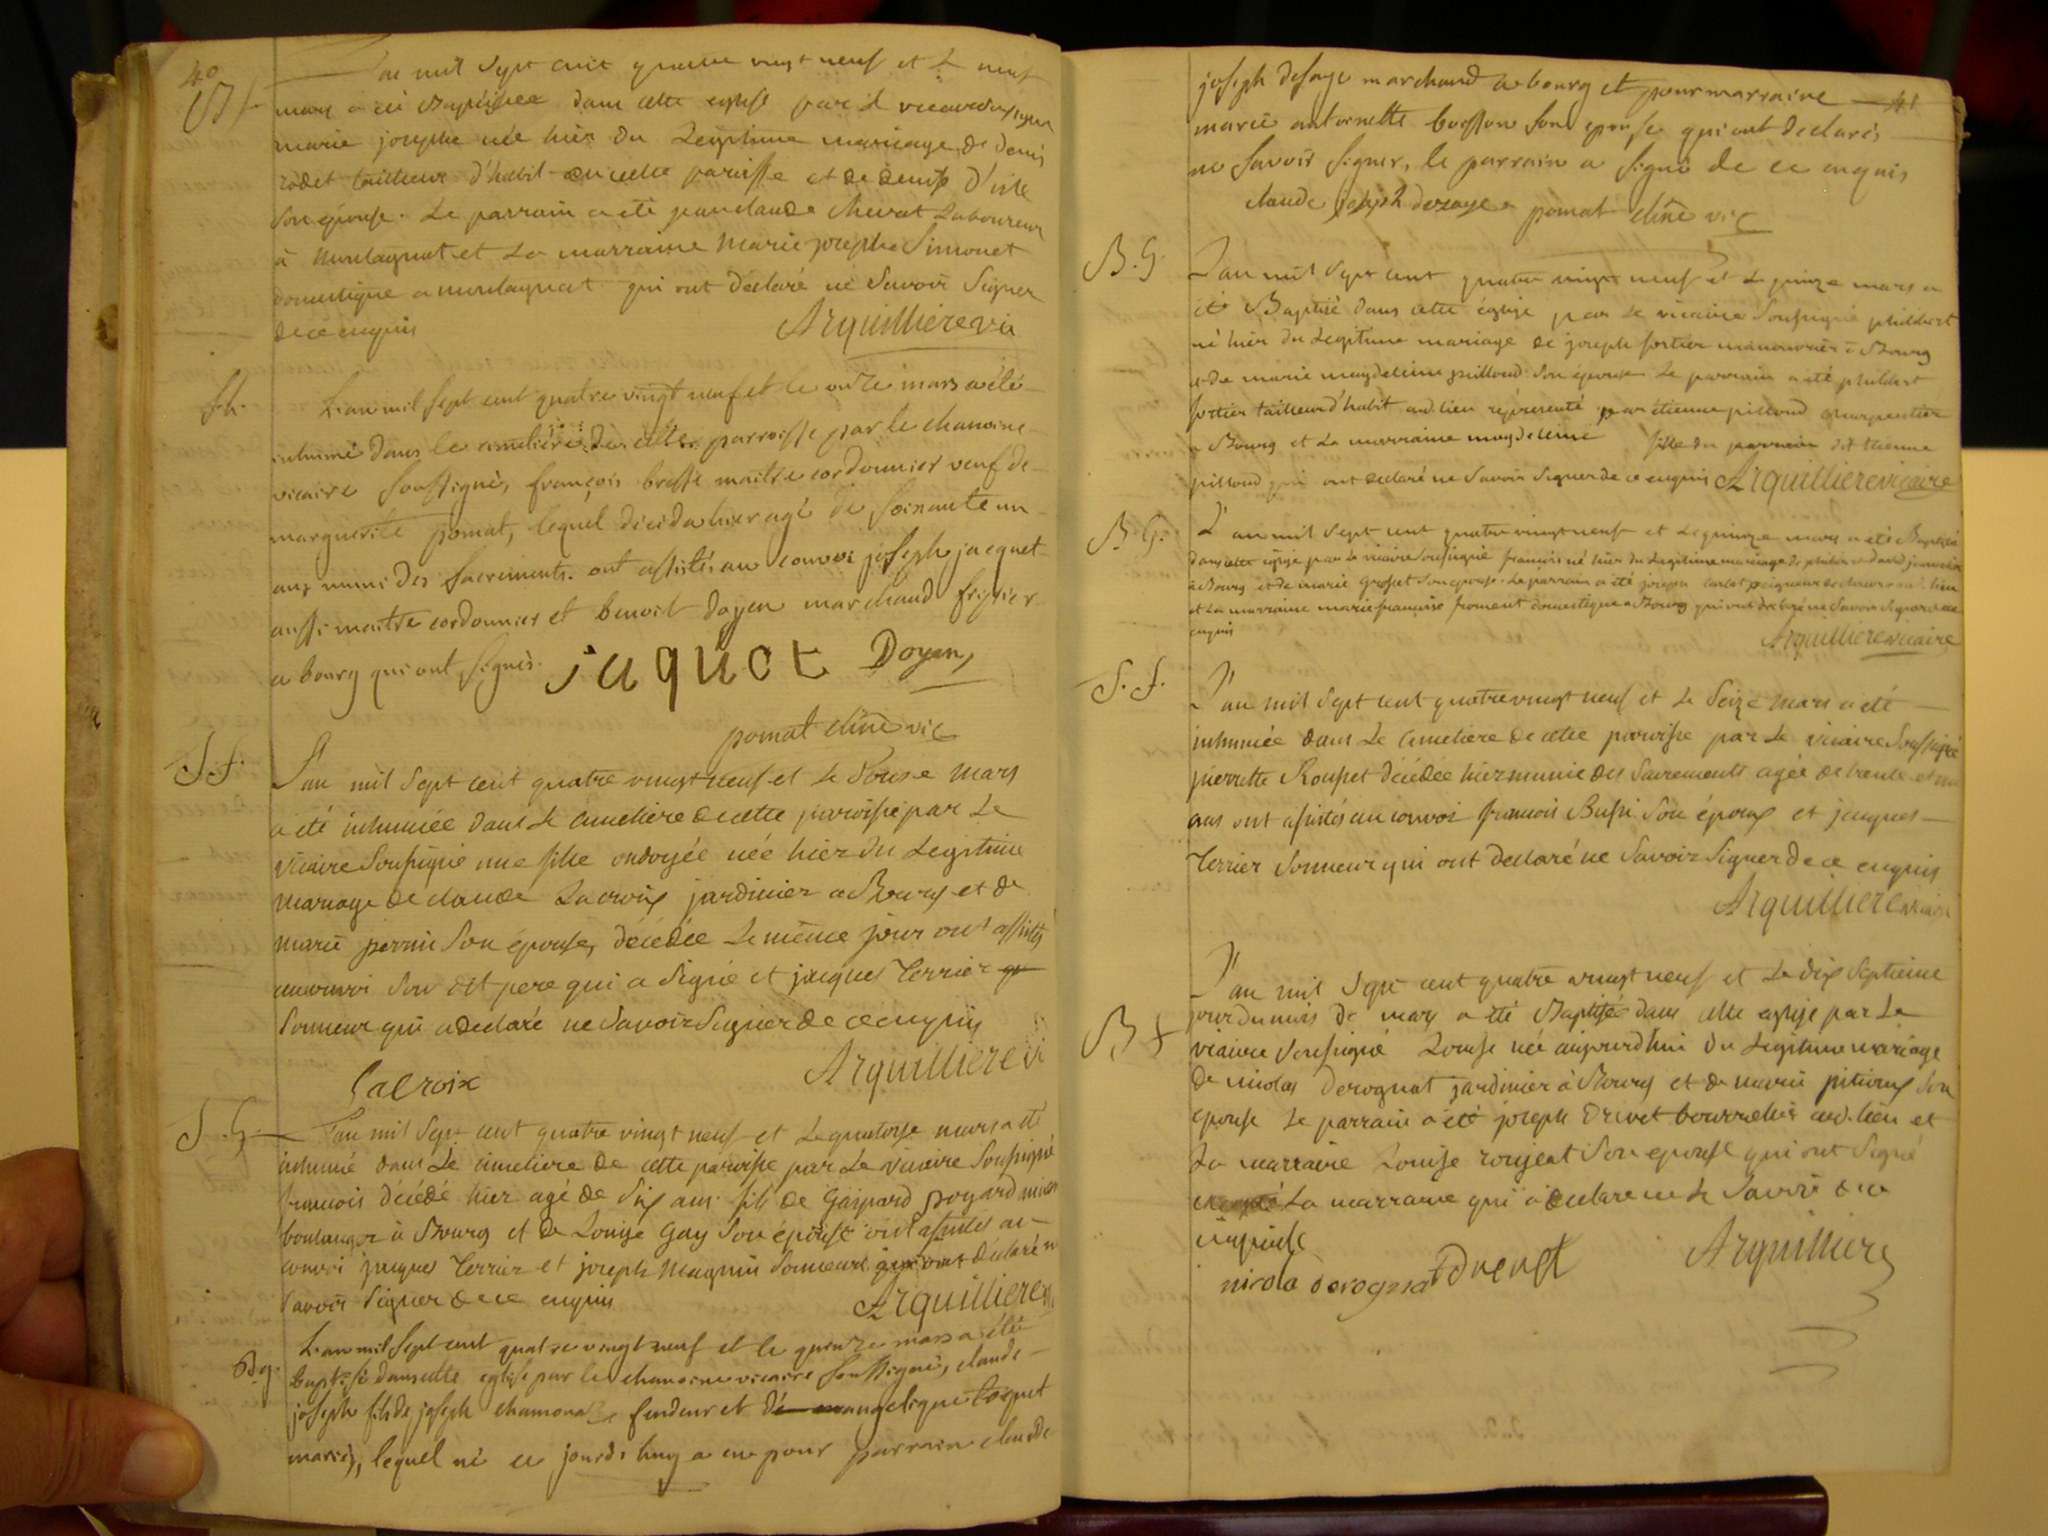 40
L'an mil sept cent quatre vingt neuf et le neuf
B f
mars a été Baptisée dans cette eglise par le vicaire soussigné
marie josephe née hier du Legitime mariage de denis
rodet tailleur d'habit en cette paroisse et de denise d'isle
son épouse. Le parrain a été jean claude chevat Laboureur
à montagnat et La marraine Marie josephe Simonet
domestique a montagnat qui ont déclaré ne savoir signer
de ce enquis Arquilliere vic
S.h. L'an mil sept cent quatre vingt neuf et le onze mars a été
inhumé dans le cimetière de cette parroisse par le chanoine
vicaire soussigné, françois brosse maitre cordonnier veuf de
marguerite pomat, lequel décéda hier agé de soixante un
ans muni des sacrements. ont assistés au convoi joseph jacquet
aussi maitre cordonnier et benoit doyen marchand fripier
a bourg qui ont signés. juquet Doyen
pomat chne vic
S.f. L'an mil sept cent quatre vingt neuf et le douse mars
a été inhumée dans le cimetiere de cette paroisse par Le
vicaire soussigné une fille ondoyée née hier du Legitime
mariage de claude Lacroix jardinier a Bourg et de
marie pernie son épouse, décédée Le même jour ont assistés
au convoi son dit pere qui a signé et jacques Terrier qu
sonneur qui a declaré ne savoir signer de ce enquis
Lacroix Arquilliere vi
S.G. L'an mil sept cent quatre vingt neuf et Le quatorse mars a été
inhumé dans Le cimetiere de cette paroisse par Le vicaire soussigné
francois décédé hier agé de six ans fils de Gaspard poyard
boulanger à Bourg et de Louise Gay son épouse ont assistés au
convoi jacques Terrier et joseph Magnin sonneurs qui ont déclaré ne
savoir signer de ce enquis Arquilliere vi
B.g. L'an mil sept cent quatre vingt neuf et le quinze mars a été
baptisé dans cette eglise par le chanoine vicaire soussigné, claude
joseph fils de joseph chamona fendeur et de angelique
mariés, lequel né ce jourd'huy a eu pour parrain claude
joseph desaye marchand a bourg et pour marraine 41
marie antoinette boisson son epouse qui ont declarés
ne savoir signer, le parrain a signé de ce enquis
claude joseph desaye pomat chne vic
B.G. L'an mil sept cent quatre vingt neuf et Le quinze mars a
été Baptisé dans cette église par Le vicaire soussigné philibert
né hier du Legitime mariage de joseph fortier manouvrier à Bourg
et de marie magdeleine pilloud son épouse Le parrain a été philibert
fortier tailleur d'habit aud. lieu répresenté par étienne pilloud charpentier
a Bourg et La marraine magdeleine fille du dit étienne
pilloud qui ont declaré ne savoir signer de ce enquis Arquilliere vicaire
B.G. L'an mil sept cent quatre vingt neuf et Le quinze mars a été Baptisé
dans cette église par Le vicaire soussigné francois né hier du Legitime mariage de philibert
à Bourg et de marie Groset son épouse. Le parrain a été joseph peigneur de chanvre aud. lieu
et La marraine marie francoise froment domestique a Bourg qui ont declaré ne savoir signer de ce
enquis Arquilliere vicaire
S.f. L'an mil sept cent quatre vingt neuf et Le seize mars a été
inhumée dans Le cimetiere de cette paroisse par Le vicaire soussigné
pierrette Rousset décédée hier munie des sacrements agée de trente et un
ans ont assistés au convoi francois Bussi son époux et jacques
Terrier sonneur qui ont declaré ne savoir signer de ce enquis
Arquilliere vicaire
L'an mil sept cent quatre vingt neuf et Le dix septieme
B f jour du mois de mars a été Baptisée dans cette eglise par Le
vicaire soussigné Louise née aujourd'hui du Legitime mariage
de nicolas derognat jardinier à Bourg et de marie pitioux son
epouse Le parrain a été joseph Drivet bourrelier aud. lieu et
La marraine Louise roujeat son epouse qui ont signé
excepté La marraine qui a declaré ne le savoir de ce
enquise
nicola derognat Drivet Arquilliere